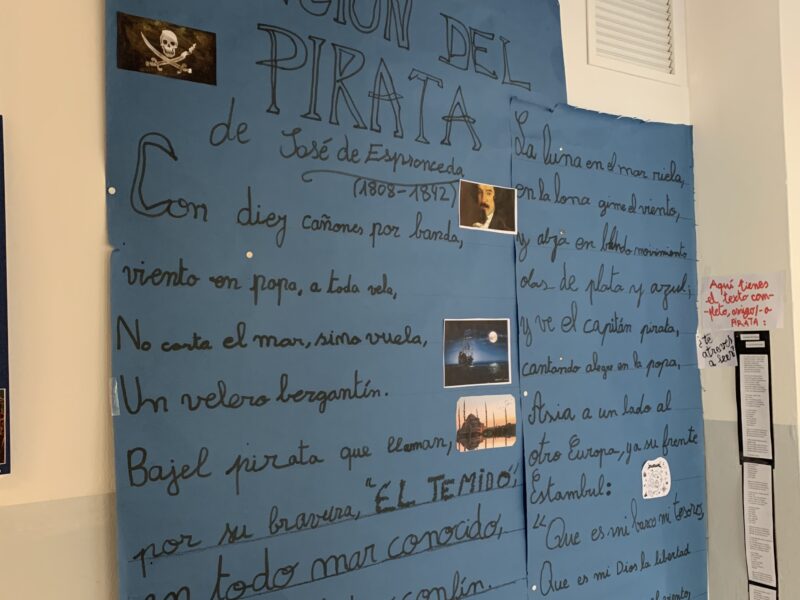 CANCIÓN DEL
PIRATA
de José de Espronceda
(1808-1842)
Con diez cañones por banda,
viento en popa, a toda vela,
No corta el mar, sino vuela,
Un velero bergantín.
Bajel pirata que llaman,
por su bravura, "EL TEMIDO",
en todo mar conocido,
confín.
La luna en el mar riela,
en la lona gime el viento,
y alza en blando movimiento
olas de plata y azul;
y ve el capitán pirata,
cantando alegre en la popa,
Asia a un lado al
otro Europa, ya su frente
Estambul:
"Que es mi barco mi tesoro,
Que es mi Dios la libertad
viento,
Aquí tienes
el texto com-
-pleto, amigo/-a
PIRATA:
¿te
atreves
a leer?